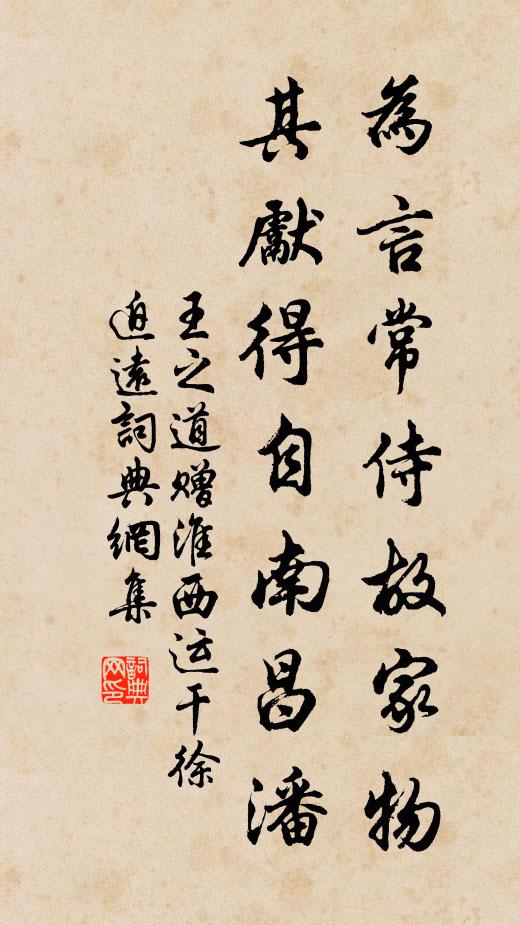 為言常侍故家物
其獻得自南昌潘
王之道贈淮西运干徐
遠詞典網集
詞典
网印